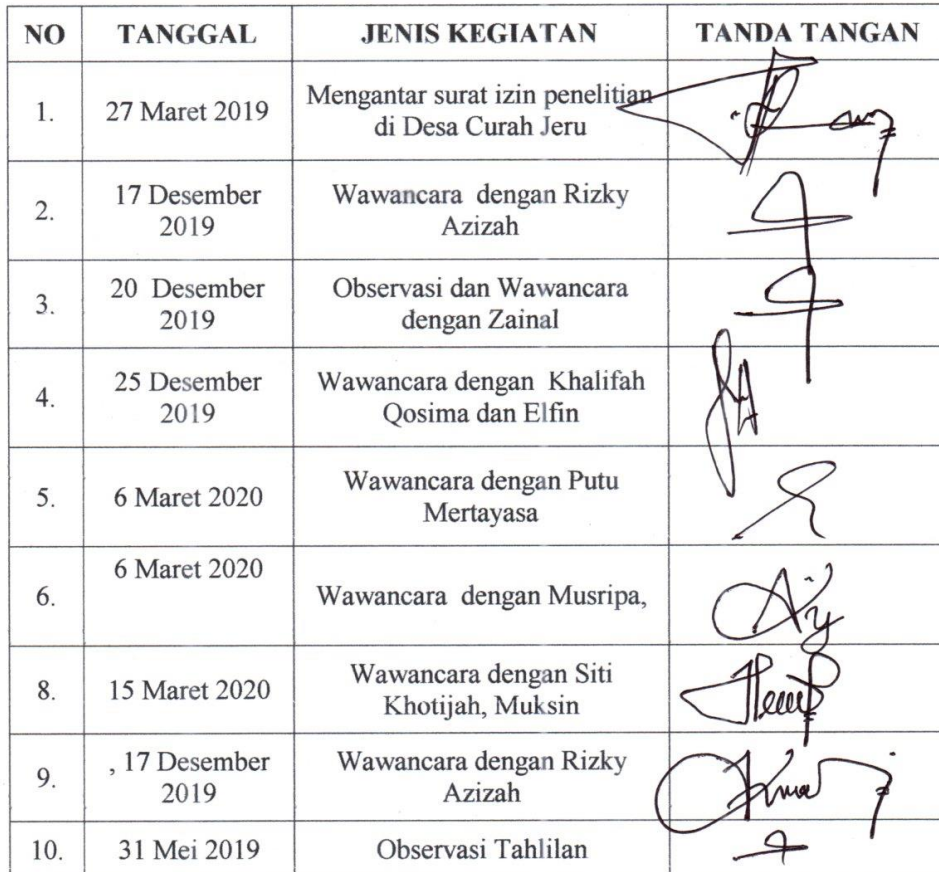 NO TANGGAL JENIS KEGIATAN TANDA TANGAN
1. 27 Maret 2019 Mengantar surat izin penelitian
di Desa Curah Jeru
2. 17 Desember
2019 Wawancara dengan Rizky
Azizah
3. 20 Desember
2019 Observasi dan Wawancara
dengan Zainal
4. 25 Desember
2019 Wawancara dengan Khalifah
Qosima dan Elfin
5. 6 Maret 2020 Wawancara dengan Putu
Mertayasa
6. 6 Maret 2020 Wawancara dengan Musripa,
8. 15 Maret 2020 Wawancara dengan Siti
Khotijah, Muksin
9. , 17 Desember
2019 Wawancara dengan Rizky
Azizah
10. 31 Mei 2019 Observasi Tahlilan